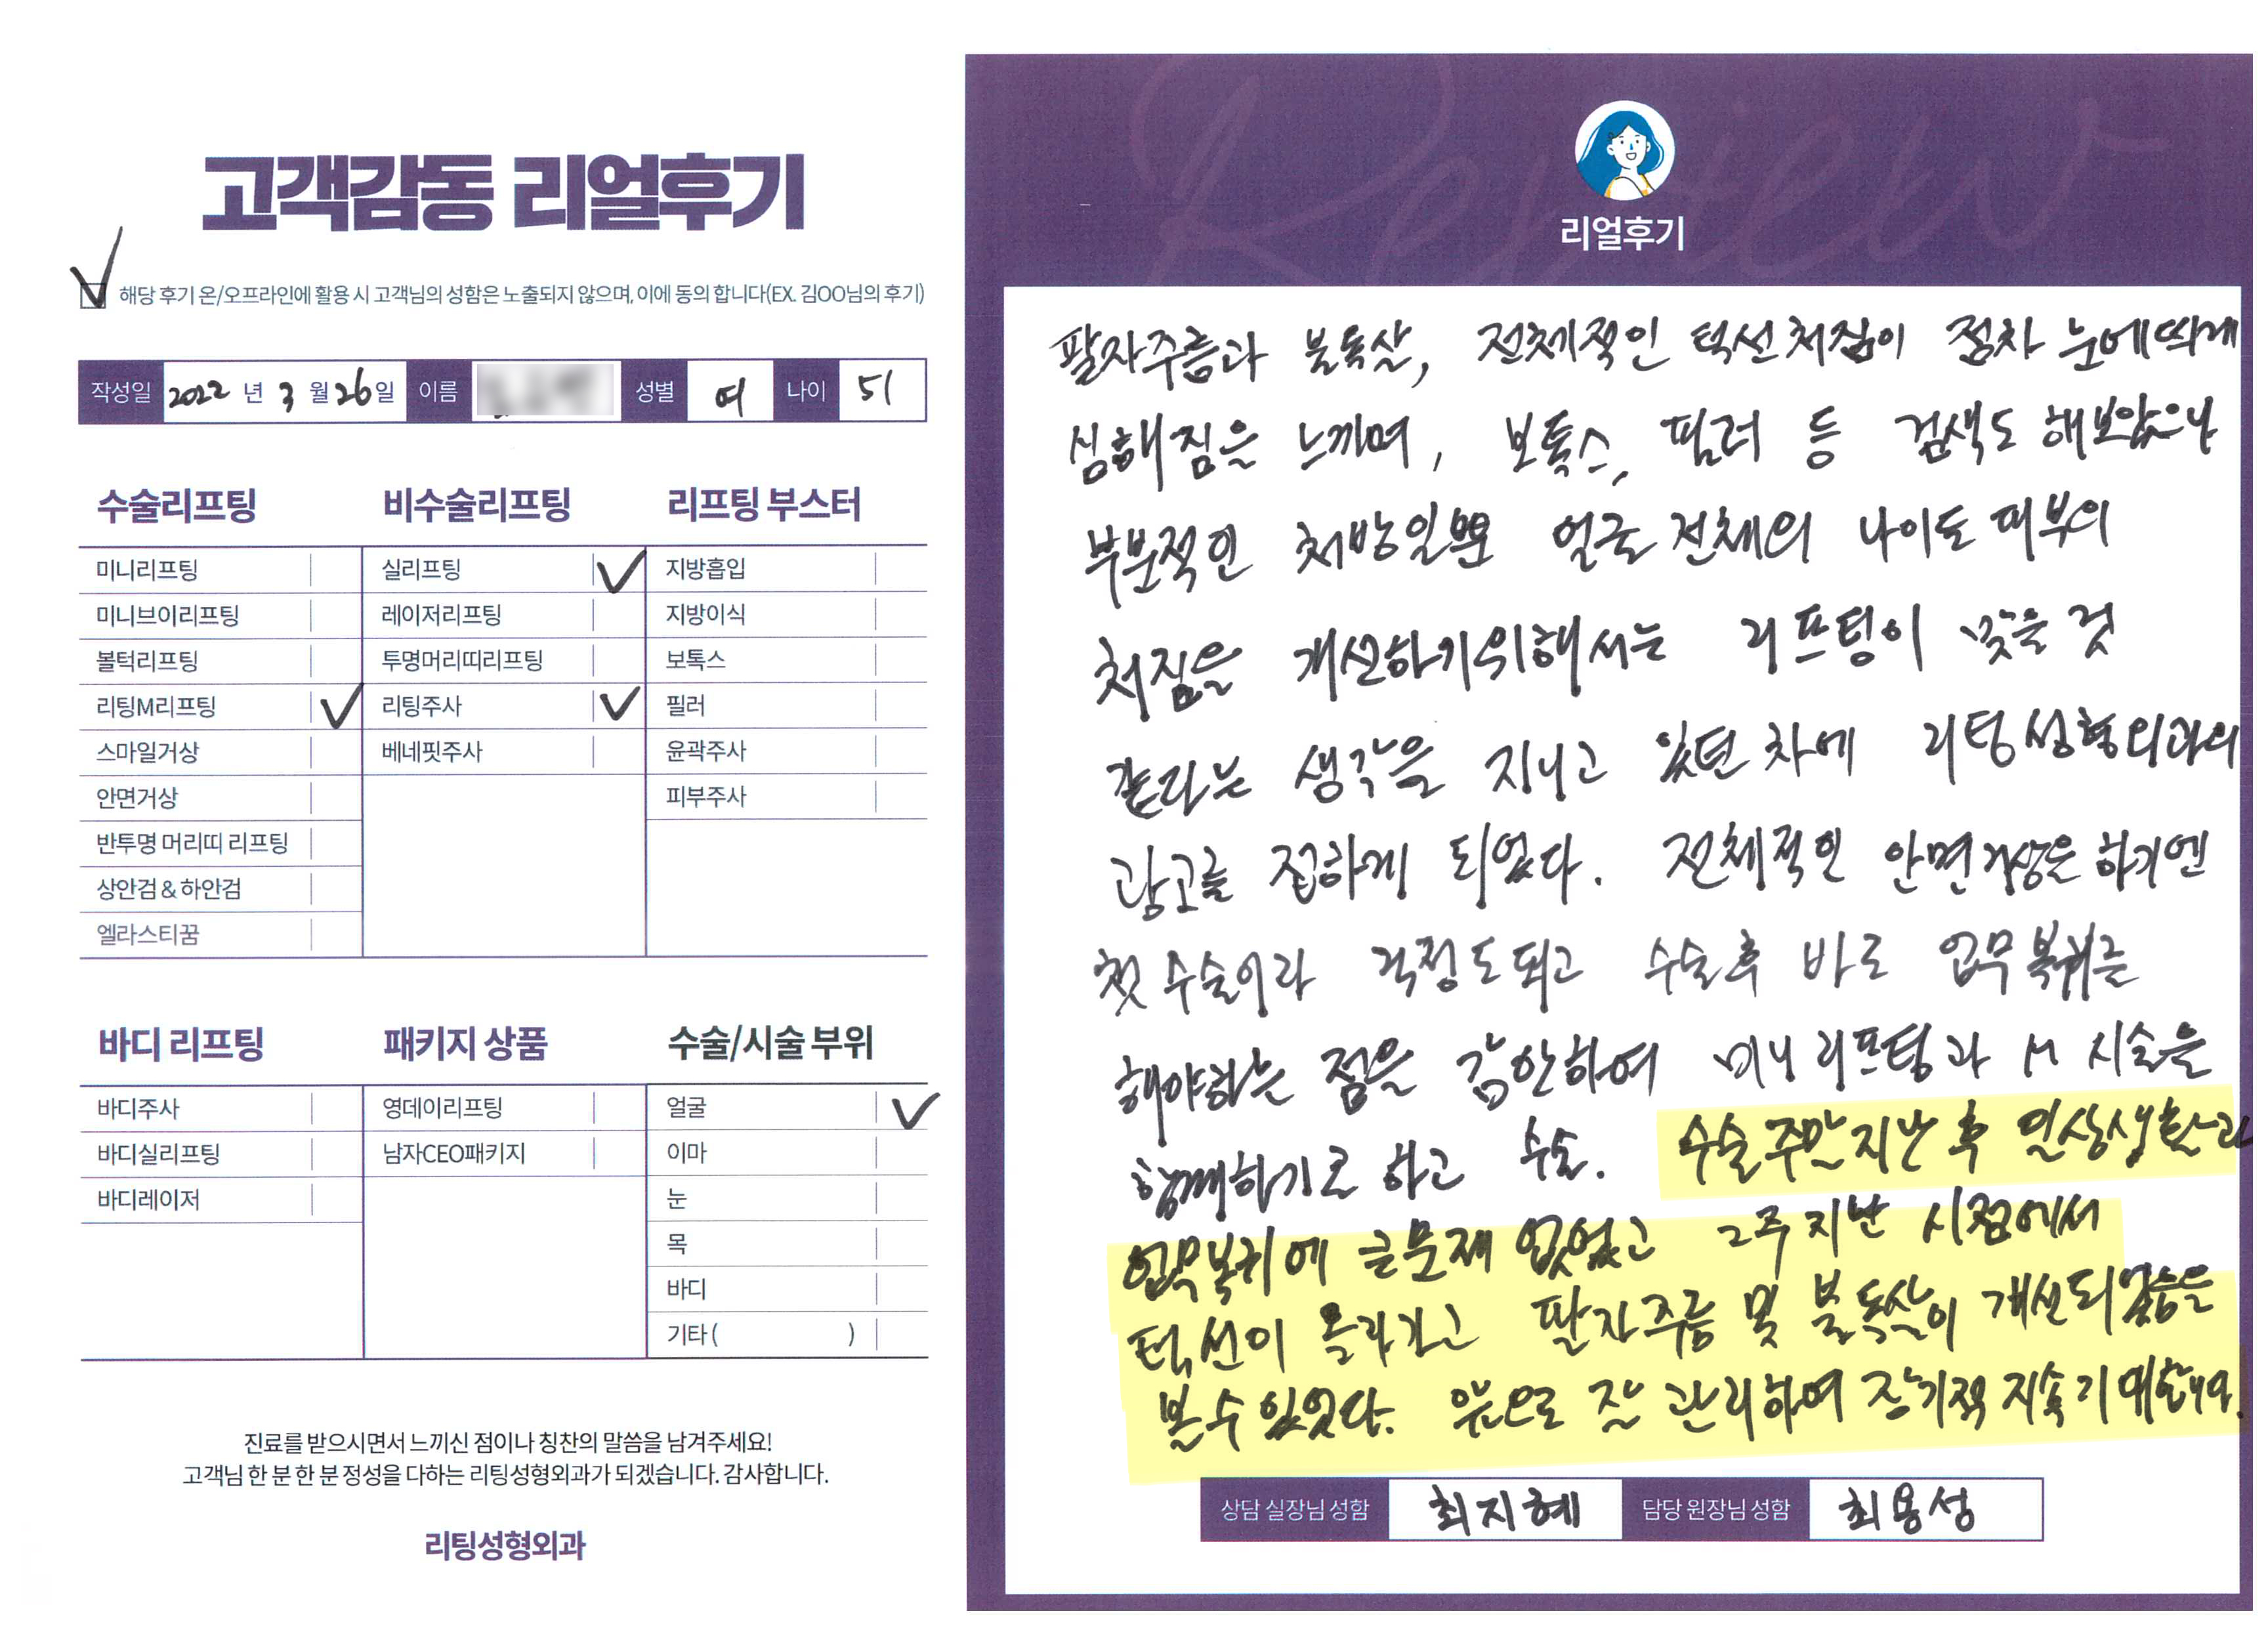 고객감동 리얼후기
해당 후기 온/오프라인에 활용 시 고객님의 성함은 노출되지 않으며, 이에 동의 합니다(EX. 김OO님의 후기)
작성일 2022 년 3 월 26 일 이름 성별 여 나이 51
수술리프팅
미니리프팅
미니브이리프팅
볼턱리프팅
리팅M리프팅
스마일거상
안면거상
반투명 머리띠 리프팅
상안검 & 하안검
엘라스티꿈
비수술리프팅
실리프팅
레이저리프팅
투명머리띠리프팅
리팅주사
베네핏주사
리프팅 부스터
지방흡입
지방이식
보톡스
필러
윤곽주사
피부주사
바디 리프팅
바디주사
바디실리프팅
바디레이저
패키지 상품
영데이리프팅
남자CEO패키지
수술/시술 부위
얼굴
이마
눈
목
바디
기타 ( )
진료를 받으시면서 느끼신 점이나 칭찬의 말씀을 남겨주세요!
고객님 한 분 한 분 정성을 다하는 리팅성형외과가 되겠습니다. 감사합니다.
리팅성형외과
Review
리얼후기
팔자주름과 불독살, 전체적인 턱선 처짐이 점차 눈에 띄게
심해짐을 느끼며, 보톡스, 필러 등 검색도 해보았으나
부분적인 처방일뿐 얼굴 전체의 나이도 피부의
처짐을 개선하기위해서는 리프팅이 맞을 것
같다는 생각을 지니고 있던 차에 리팅성형외과의
광고를 접하게 되었다. 전체적인 안면거상은 하기엔
첫 수술이라 걱정도되고 수술후 바로 업무복귀를
해야하는 점을 감안하여 미니리프팅과 M 시술을
함께하기로 하고 수술. 수술 주말지난 후 일상생활과
업무복귀에 큰문제 없었고 2주 지난 시점에서
턱선이 올라가고 팔자주름 및 불독살이 개선되었음을
볼수있었다. 앞으로 잘 관리하여 장기적 지속 기대합니다.
상담 실장님 성함 최지혜 담당 원장님 성함 최용성